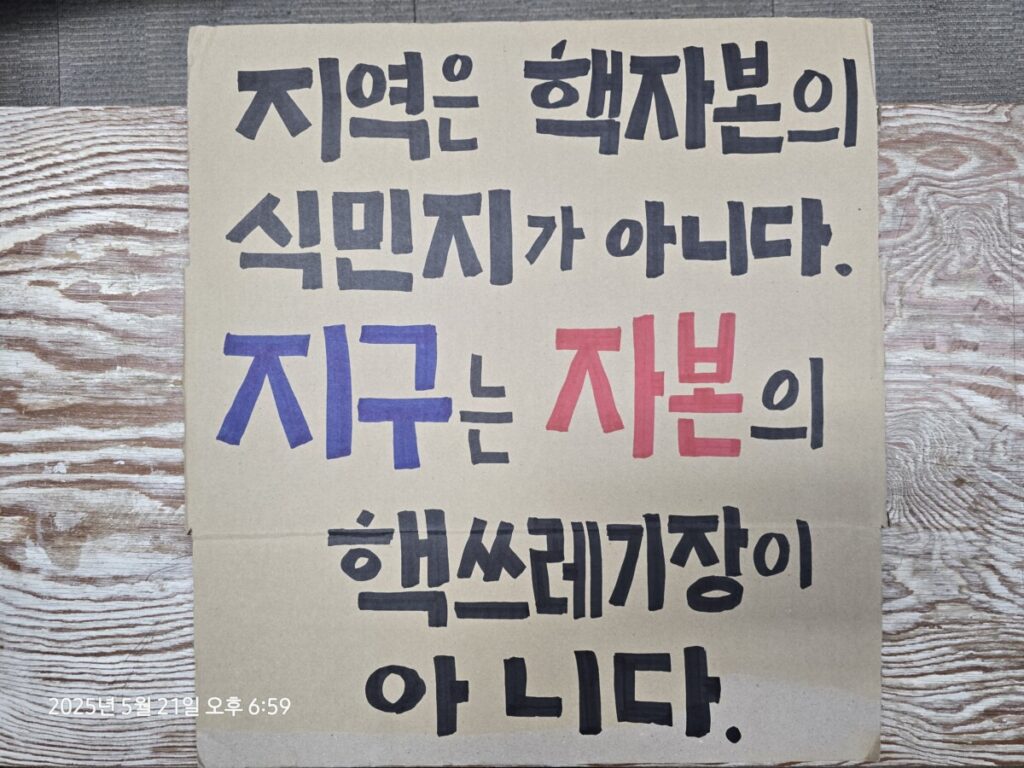 지역은 핵자본의
식민지가 아니다.
지구는 자본의
핵쓰레기장이
아니다.
2025년 5월 21일 오후 6:59